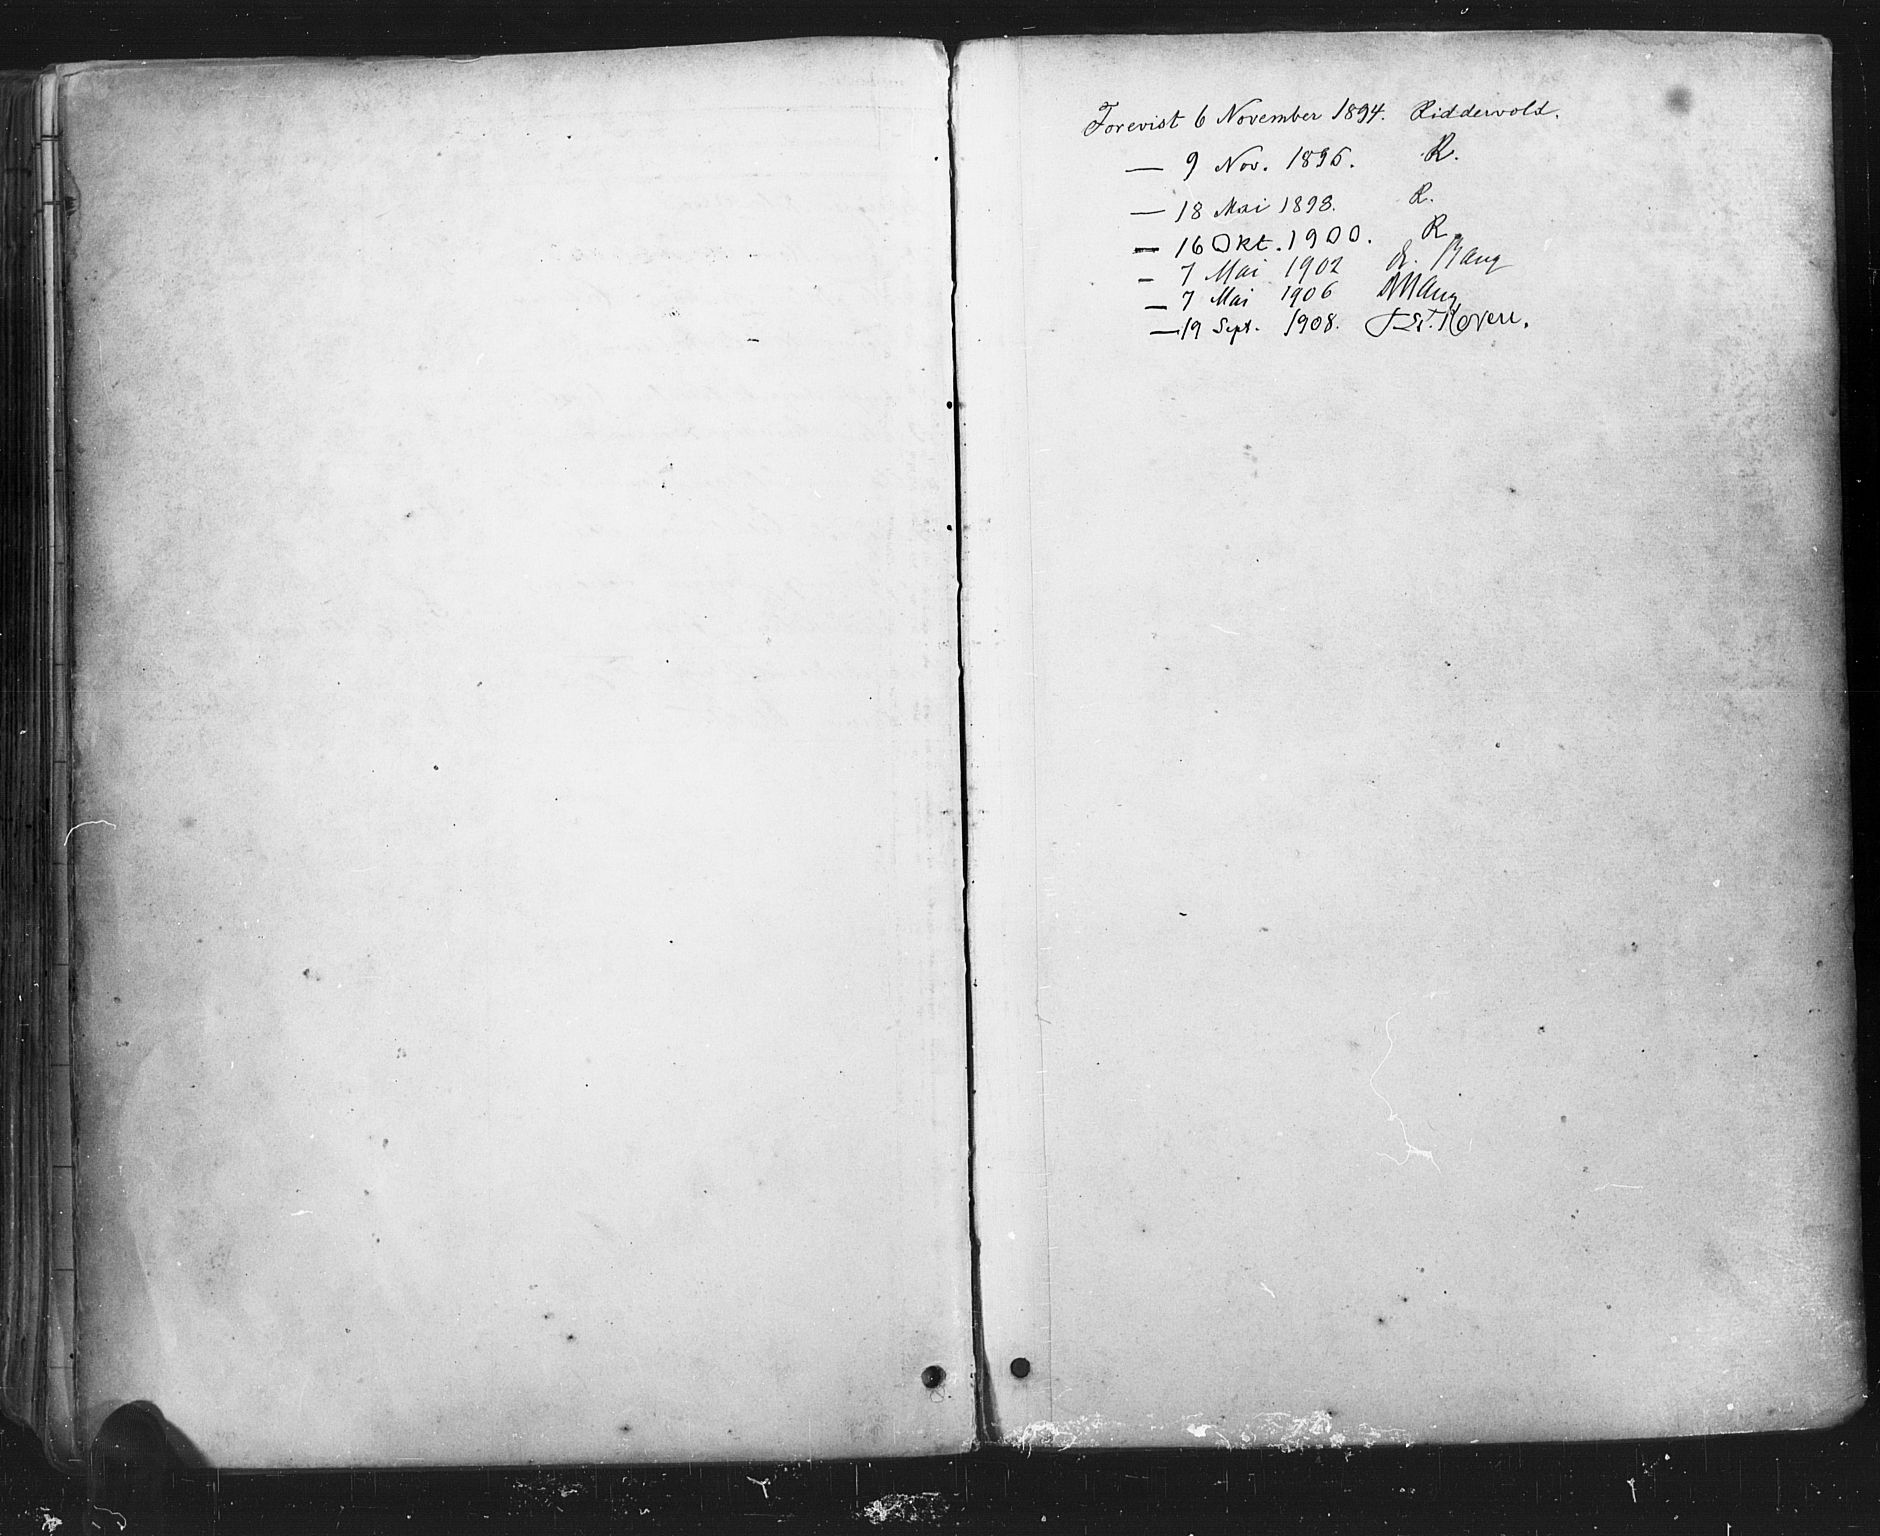 Forevist 6 November 1894. Riddervold.
— 9 Nov. 1895. R.
— 18 Mai 1898. R.
— 16 Okt. 1900. R.
– 7 Mai 1902 Bang
– 7 Mai 1906 Bang
— 19 Sept. 1908.